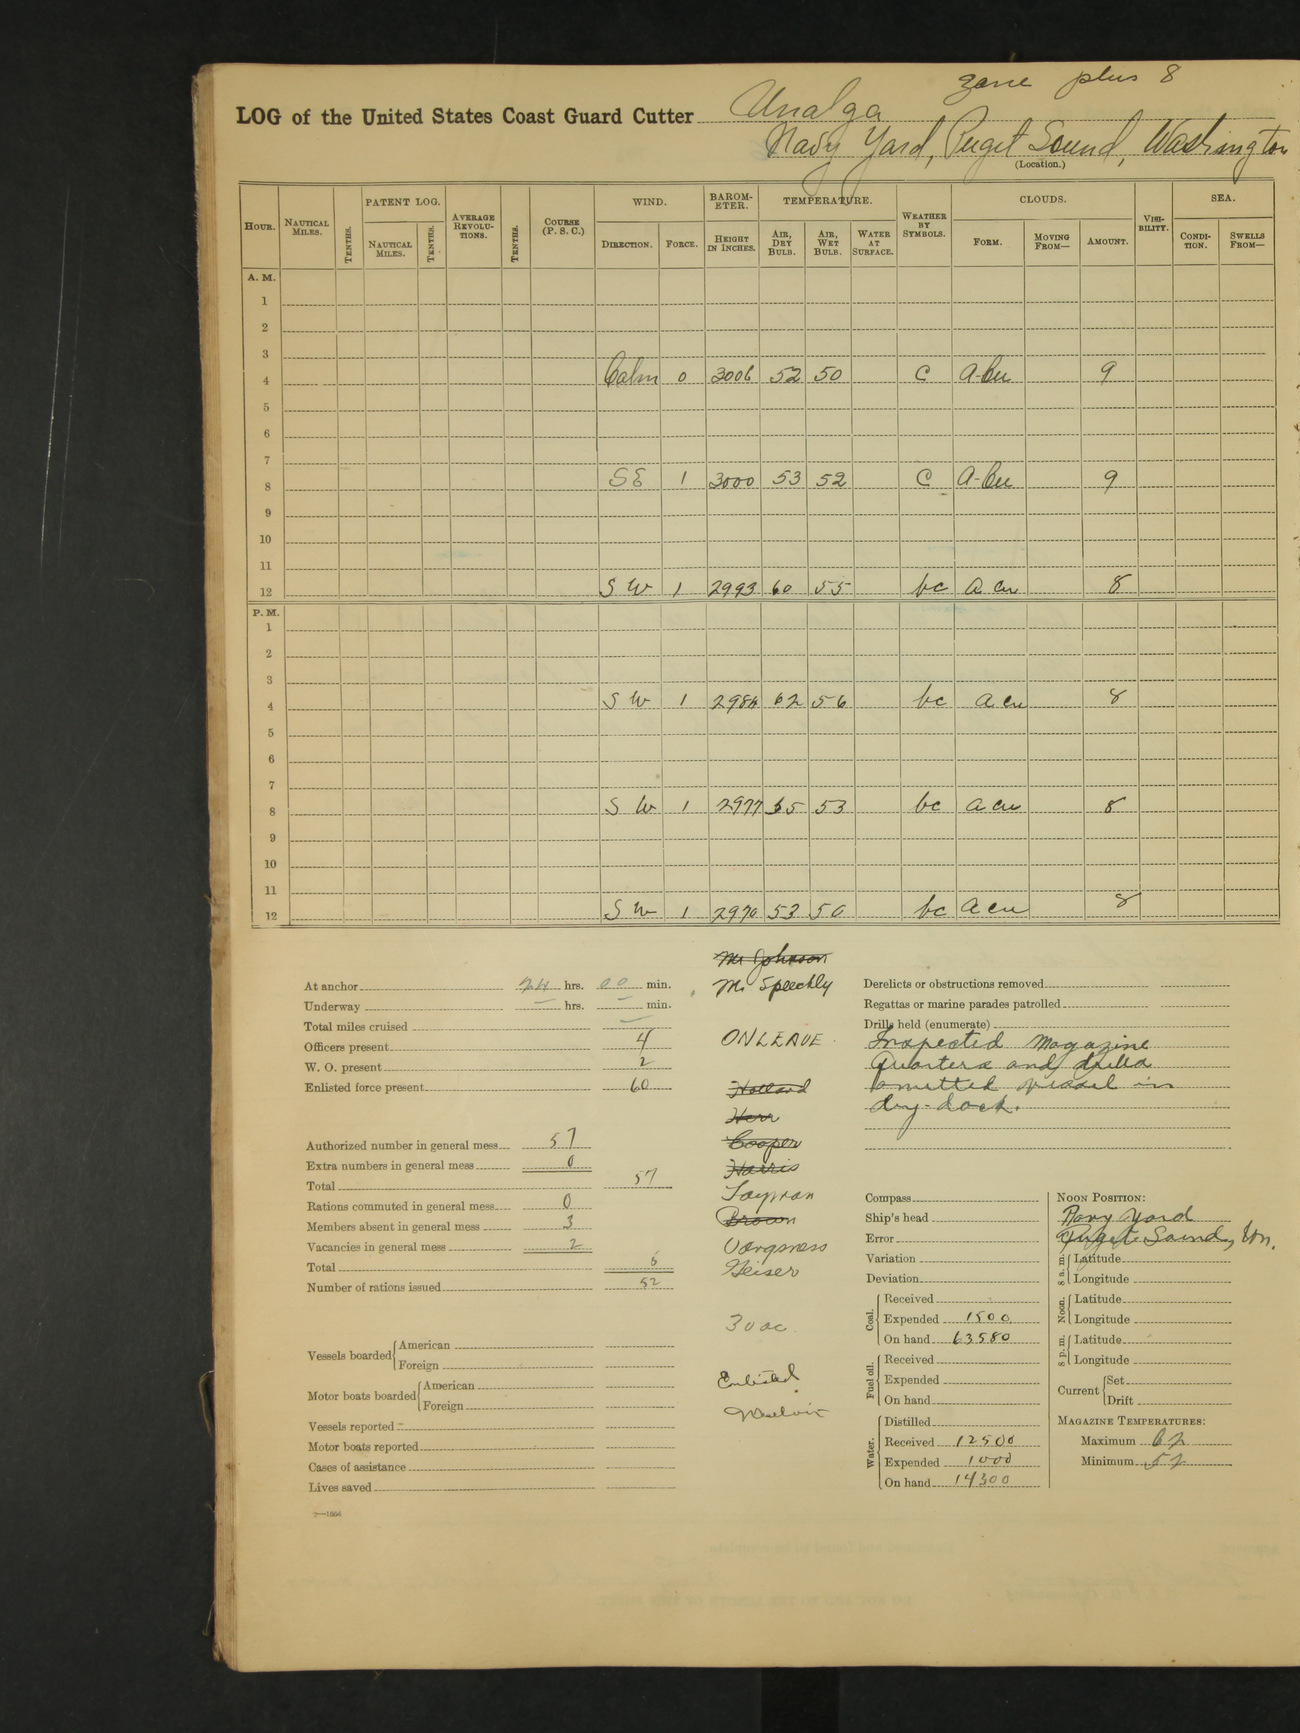 zone plus 8
LOG of the United States Coast Guard Cutter Unalga
Navy Yard, Puget Sound, Washington
(Location.)
HOUR. NAUTICAL MILES. TENTHS. PATENT LOG. NAUTICAL MILES. TENTHS. AVERAGE REVOLUTIONS. TENTHS. COURSE (P. S. C.) WIND. DIRECTION. FORCE. BAROMETER. HEIGHT IN INCHES. TEMPERATURE. AIR, DRY BULB. AIR, WET BULB. WATER AT SURFACE. WEATHER BY SYMBOLS. CLOUDS. FORM. MOVING FROM— AMOUNT. VISIBILITY. SEA. CONDITION. SWELLS FROM—
A. M.
1
2
3
4 Calm 0 3006 52 50 C A-Cu 9
5
6
7
8 SE 1 3000 53 52 C A-Cu 9
9
10
11
12 SW 1 2993 60 55 bc a cu 8
P. M.
1
2
3
4 SW 1 2984 62 56 bc a cu 8
5
6
7
8 SW 1 2977 55 53 bc a cu 8
9
10
11
12 SW 1 2970 53 50 bc a cu 8
At anchor 24 hrs. 00 min.
Underway — hrs. — min.
Total miles cruised —
Officers present 4
W. O. present 2
Enlisted force present 60
Authorized number in general mess 57
Extra numbers in general mess 0
Total 57
Rations commuted in general mess 0
Members absent in general mess 3
Vacancies in general mess 2
Total 5
Number of rations issued 52
Vessels boarded American
Foreign
Motor boats boarded American
Foreign
Vessels reported
Motor boats reported
Cases of assistance
Lives saved
Mr Johnson
Mr Speechly
ON LEAVE
Holland
Herr
Cooper
Harris
Brown
Geiser
Enlisted
Derelicts or obstructions removed
Regattas or marine parades patrolled
Drills held (enumerate)
Inspected magazine
Quarters and drills
omitted vessel in
dry-dock.
Compass
Ship's head
Error
Variation
Deviation
Coal. Received
Expended 1500
On hand 63580
Fuel oil. Received
Expended
On hand
Water. Distilled
Received 12500
Expended 1000
On hand 14300
NOON POSITION:
Navy Yard
Puget Sound, Wn.
8 a. m. Latitude
Longitude
Noon. Latitude
Longitude
8 p. m. Latitude
Longitude
Current Set
Drift
MAGAZINE TEMPERATURES:
Maximum 62
Minimum 52